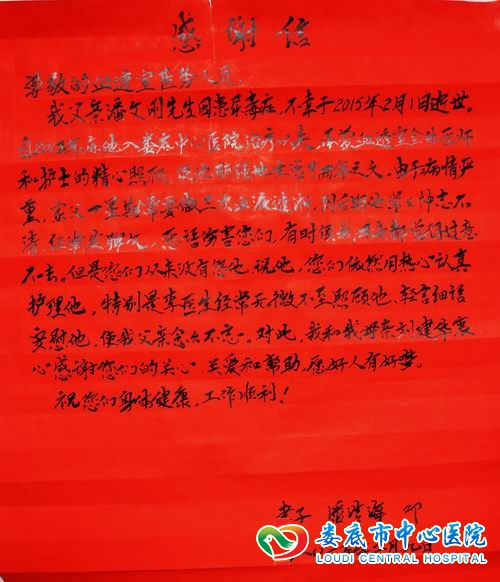 感谢信
尊敬的血透室医务人员：
我父亲潘文刚先生因患尿毒症，不幸于2015年2月1日逝世。
自2013年底他入娄底中心医院治疗以来，承蒙血透室全体医师
和护士的精心照顾，使他顽强地生活了两年之久。由于病情严
重，家父一星期要做三次血液透析，到后期他常々神志不
清，经常发脾气，恶语伤害您们，有时
不去。但是您们从来没有怨他、说他，您们依然用热心、认真
护理他，特别是李医生经常无微不至照顾他，轻言细语
安慰他，使我父亲念々不忘。对此，我和我母亲刘建华衷
心感谢您们的关心、关爱和帮助，愿好人有好梦。
祝您们身体健康，工作顺利！
孝子 潘 叩
娄底市中心医院
LOUDI CENTRAL HOSPITAL